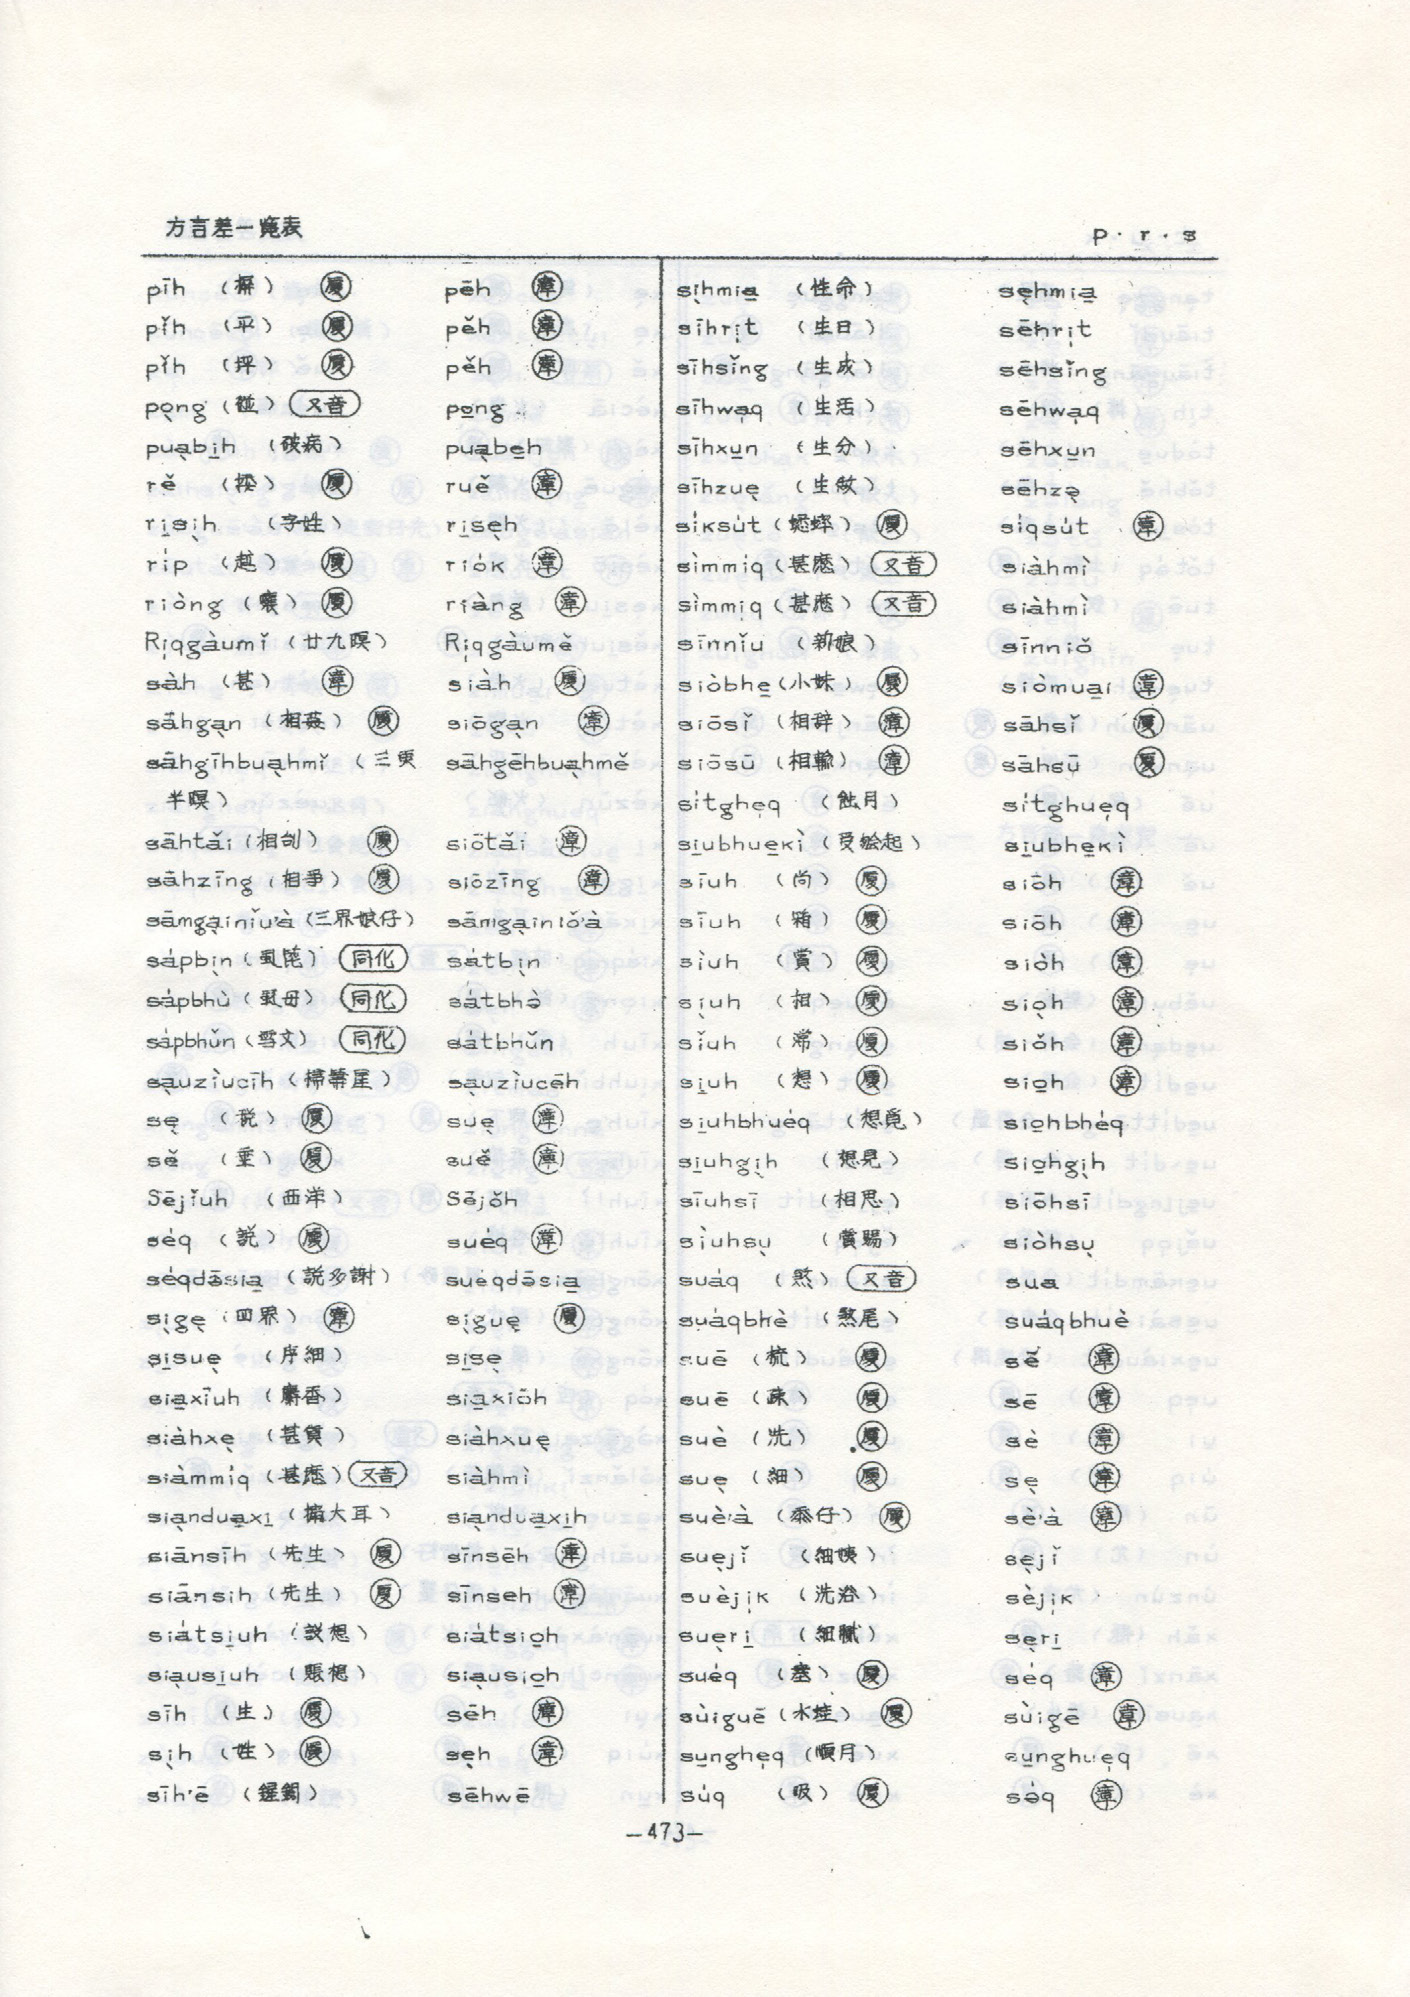 方言差一覧表
p · r · s
pīh (摒) 厦 pēh 漳
pǐh (平) 厦 pěh 漳
pǐh (坪) 厦 pěh 漳
po̱ng (碰) 又音 po̱ng
pua̩bi̱h (破病) pua̩be̱h
rě (挼) 厦 ruě 漳
ri̱si̩h (字姓) ri̱se̩h
ríp (越) 厦 riók 漳
riòng (壤) 厦 riàng 漳
Ri̩qgàumǐ (廿九暝) Ri̩qgàumě
sàh (甚) 漳 siàh 厦
sāhga̩n 厦 siōga̩n 漳
sāhgīhbua̩hmǐ (三更 sāhgēhbua̩hmě
半暝)
sāhtǎi (相刣) 厦 siōtǎi 漳
sāhzīng (相爭) 厦 siōzīng 漳
sāmga̩iniǔ'à (三界娘仔) sāmga̩iniǒ'à
sápbi̩n (虱篦) 同化 sátbi̩n
sápbhù (虱母) 同化 sátbhə̀
sápbhǔn (雪文) 同化 sátbhǔn
sa̩uzìucīh (掃箒星) sa̩uzìucēh
se̩ (税) 厦 sue̩ 漳
sě (垂) 厦 suě 漳
Sējǐuh (西洋) Sējǒh
séq (説) 厦 suéq 漳
séqdə̄sia̱ (説多謝) suéqdə̄sia̱
si̩ge̩ (四界) 漳 si̩gue̩ 厦
si̱sue̩ (序細) si̱se̩
sia̱xīuh (麝香) sia̱xiōh
siàhxe̩ (甚貨) siàhxue̩
siàmmi̍q (甚麽) 又音 siàhmì
sia̩ndua̱xi̱ (搧大耳) sia̩ndua̱xi̱h
siānsīh (先生) 厦 sīnsēh 漳
siānsih (先生) 厦 sīnseh 漳
siátsi̱uh (設想) siátsio̱h
sia̩usi̱uh (賬想) sia̩usio̱h
sīh (生) 厦 sēh 漳
si̩h (姓) 厦 se̩h 漳
sīh'ē sēhwē
si̩hmia̱ (性命) se̩hmia̱
sīhri̩t (生日) sēhri̩t
sīhsǐng (生成) sēhsǐng
sīhwa̩q (生活) sēhwa̩q
sīhxu̱n (生分) sēhxu̱n
sīhzue̩ (生做) sēhzə̩
síksút (蟋蟀) 厦 síqsút 漳
sìmmi̍q (甚麽) 又音 siàhmì
sìmmi̍q (甚麽) 又音 siàhmì
sīnnǐu (新娘) sīnniǒ
siòbhe̱ (小妹) 厦 siòmua̱i 漳
siōsǐ (相辭) 漳 sāhsǐ 厦
siōsū (相輸) 漳 sāhsū 厦
sítghe̩q (蝕月) sítghue̩q
si̱ubhue̱kì si̱ubhe̱kì
sīuh (尚) 厦 siōh 漳
sīuh (箱) 厦 siōh 漳
sìuh (賞) 厦 siòh 漳
si̩uh (相) 厦 sio̩h 漳
sǐuh (常) 厦 siǒh 漳
si̱uh (想) 厦 sio̱h 漳
si̱uhbhuéq (想覓) sio̱hbhéq
si̱uhgi̩h (想見) sio̱hgi̩h
sīuhsī (相思) siōhsī
sìuhsu̩ (賞賜) siòhsu̩
suáq (煞) 又音 sua
suáqbhè (煞尾) suáqbhuè
suē (梳) 厦 sē 漳
suē (疎) 厦 sē 漳
suè (洗) 厦 sè 漳
sue̩ (細) 厦 se̩ 漳
suè'à (黍仔) 厦 sè'à 漳
sue̩jǐ (細姨) se̩jǐ
suèji̩k (洗浴) sèji̩k
sue̩ri̱ (細膩) se̩ri̱
suéq (塞) 厦 séq 漳
sùiguē (水蛙) 厦 sùigē 漳
su̱nghe̩q (順月) su̱nghue̩q
súq (吸) 厦 sə́q 漳
—473—